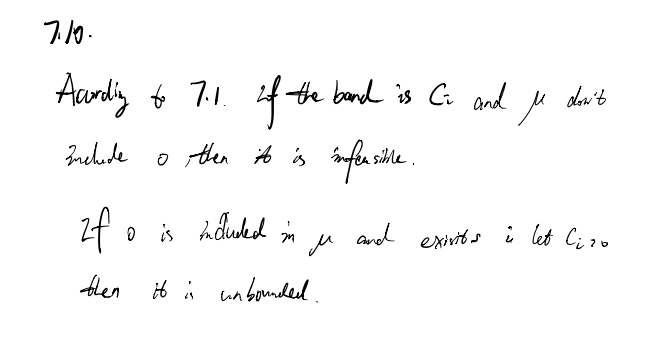 7.10.
According to 7.1. If the band is Ci and μ don't
include 0, then it is infeasible.
If 0 is included in μ and exists i let Ci>0
then it is unbounded.